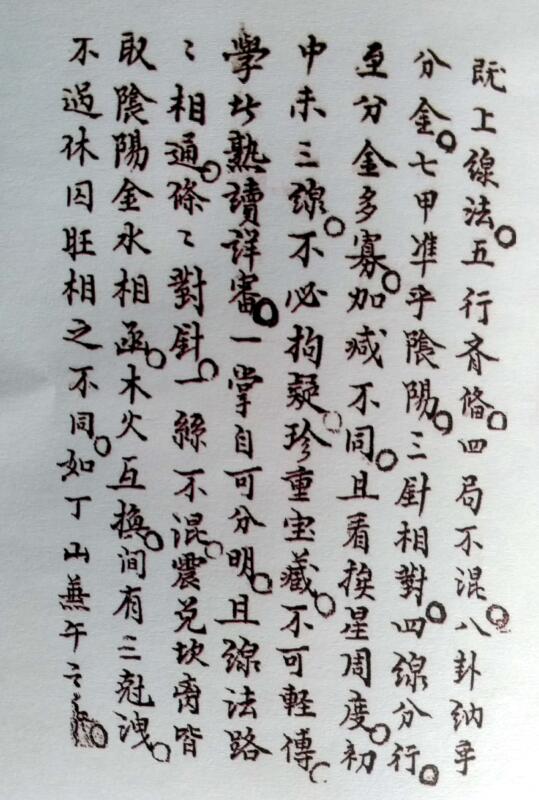 既上線法。五行齊俻。四局不混。八卦納乎
分金。七甲準乎陰陽。三針相對。四線分行。
至分金多寡。加减不同。且看挨星周度。初
中末三線。不必拘疑。珍重宝藏。不可軽傳。
學此熟讀詳審。一掌自可分明。且線法路
〻相通。條〻對針。一絲不混。震兑坎离皆
取陰陽金水相函。木火互換。间有三尅洩。
不過休囚旺相之不同。如丁山兼午